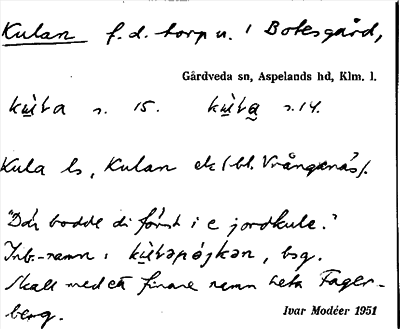 Kulan f. d. torp u. 1 Botesgård,
Gårdveda sn, Aspelands hd, Klm. l.
kùːla s. 15. kùːla̰ s. 14.
Kula ls, Kulan ek (bl. Vrångenäs).
"Där bodde di först i e jordkule."
Inb.-namn: kùːlapǫjkan, bsg.
Skall med ett finare namn heta Fager-
berg.
Ivar Modéer 1951